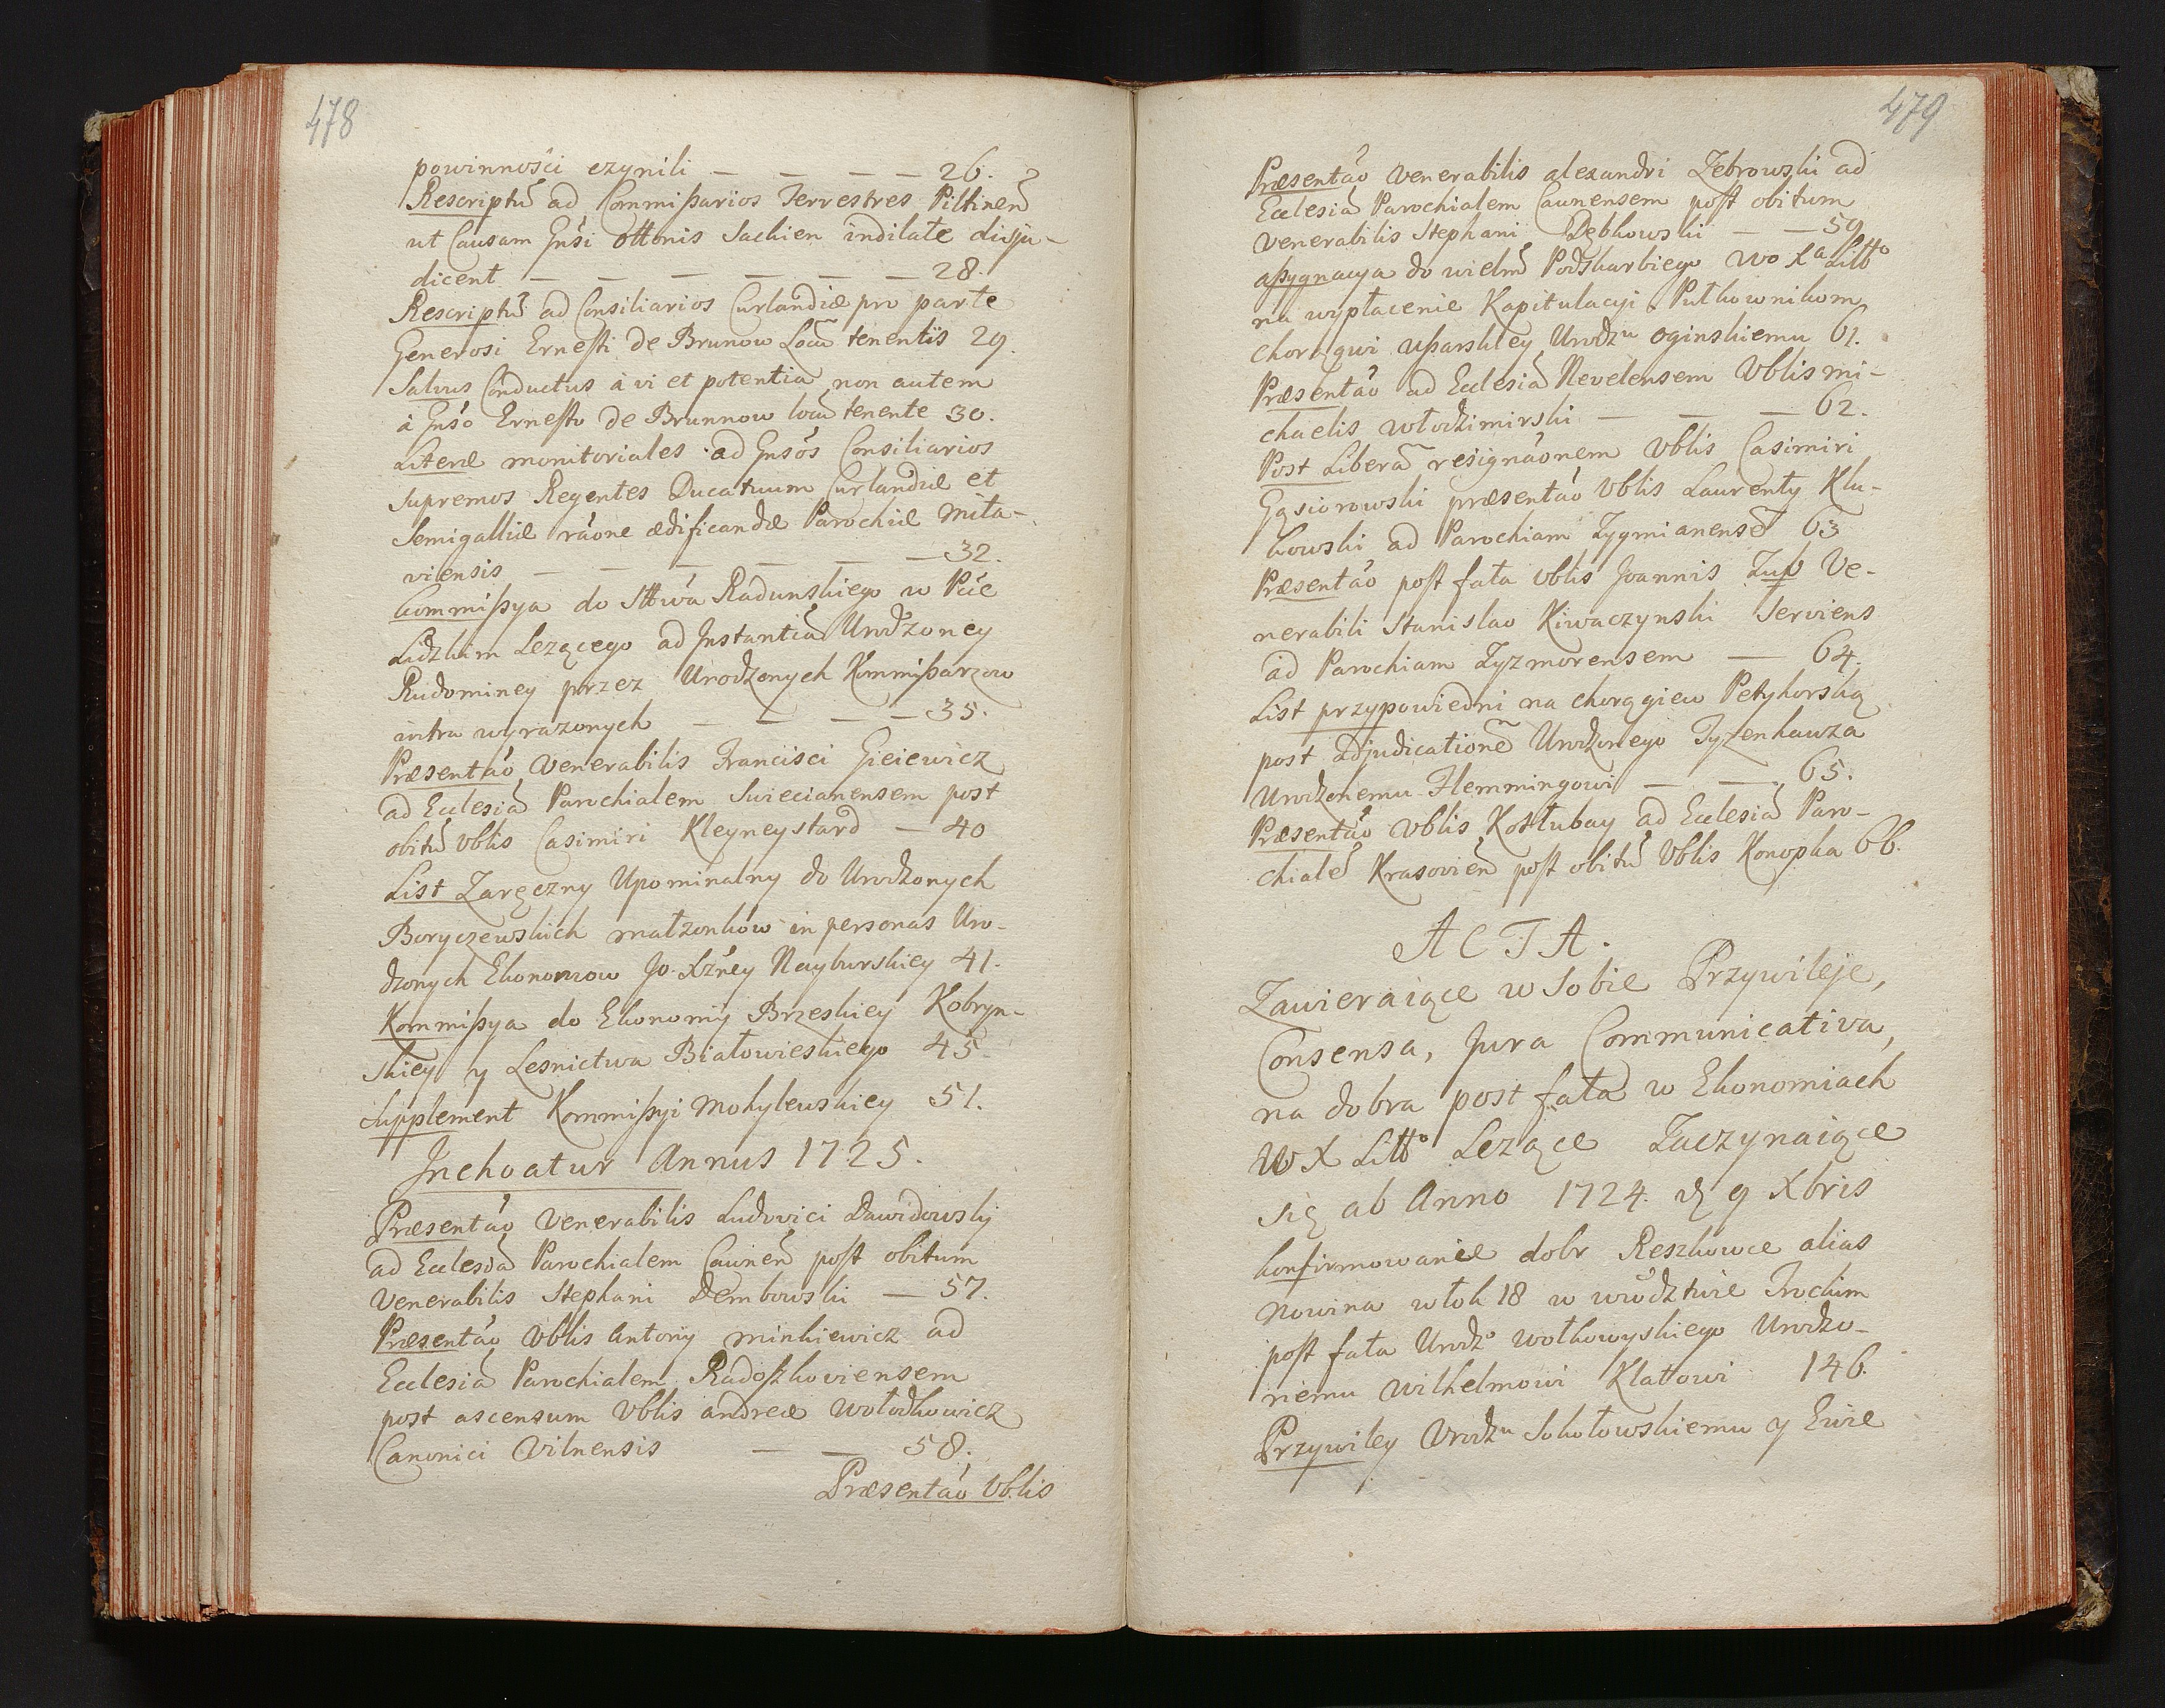 478
powinności czynili — — — — 26.
Rescriptũ ad Commißarios Terrestres Piltineñ
ut Causam Gnśi Ottonis Sacken indilate diju-
dicent — — — — — — 28.
Rescriptũ ad Consiliarios Curlandiæ pro parte
Generosi Ernesti de Brunow Locũ tenentis 29.
Salvus Conductus à vi et potentia non autem
à Gnśo Ernesto de Brunnow locũ tenente 30.
Literæ monitoriales ad Gnsós Consiliarios
Supremos Regentes Ducatuum Curlandiæ et
Semigalliæ ráone ædificandæ Parochiæ Mita-
viensis — — — — — — 32.
Commißya do Sttwá Radunskiego w Pćie
Lidzkim Lezącego ad Instantiã Urodzoney
Rudominey przez Urodzonych Kommißarzow
intra wyrazonych — — — — 35.
Præsentáo Venerabilis Francisci Gieiewicz
ad Ecclesiã Parochialem Swiecianensem post
obitũ Vblis Casimiri Kleyneystard — 40
List Zaręczny Upominalny do Urodzonych
Boryczewskich małzonkow in personas Uro-
dzonych Ekonomow Jo. Xżney Nayburskiey 41.
Kommißya do Ekonomij Brzeskiey Kobryn-
skiey y Lesnictwa Białowieskiego 45.
Supplement Kommißyi Mohylewskiey 51.
Inchoatur Annus 1725.
Præsentáo Venerabilis Ludovici Dawidowskj
ad Ecclesiã Parochialem Cauneñ post obitum
Venerabilis Stephani Dembowski — 57.
Præsentáo Vblis Antonij Minkiewicz ad
Ecclesiã Parochialem Radoszkoviensem
post ascensum Vblis Andreæ Wołodkowicz
Canonici Vilnensis — — 58.
Præsentáo Vblis
479
Præsentáo Venerabilis Alexandri Zebrowski ad
Ecclesiã Parochialem Caunensem post obitum
Venerabilis Stephani Dębkowski — — 59
Aßygnacya do Wielmo Podskarbiego Wo Xa Litto
na wypłacenie Kapitulacyi Pułkownikom
chorągwi Ußarskiey Urodzu Oginskiemu 61.
Præsentáo ad Ecclesiã Nevelensem Vblis Mi-
chaelis Włodzimirski — — — 62.
Post Liberã resignáonem Vblis Casimiri
Gąsiorowski præsentáo Vblis Laurenty Klu-
kowski ad Parochiam Zygmianensẽ 63
Præsentáo post fata Vblis Joannis Zup Ve-
nerabili Stanislao Kiwaczynski Serviens
ad Parochiam Zyzmorensem — 64.
List przypowiedni na chorągiew Petyhorską
post Adjudicationẽ Urodzonego Tyzenhauza
Urodzonemu Flemmingowi — — 65.
Præsentáo Vblis Kosłubay ad Ecclesiã Paro-
chialẽ Krasovieñ post obitũ Vblis Konopka 66.
ACTA.
Zawieraiące w Sobie Przywileje,
Consensa, Jura Communicativa,
na dobra post fata w Ekonomiach
W X Litto Lezące Zaczynaiące
się ab Anno 1724. d 9 Xbris
Konfirmowanie dobr Reszkowce alias
Nowina włok 18 w Wwodztwie Trockim
post fata Urodzo Wołkowyskiego Urodzo-
nemu Wilhelmowi Klatowi 146.
Przywiley Urodzu Sokołowskiemu y Ewie